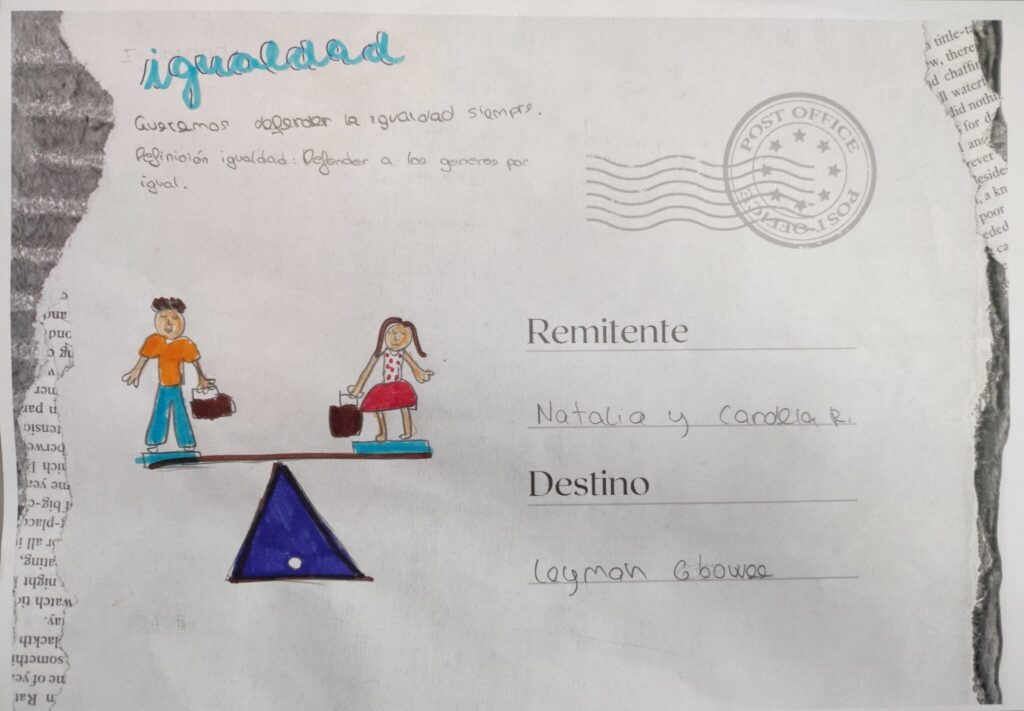 igualdad
Queremos defender la igualdad siempre.
Definición igualdad: Defender a los generos por
igual.
POST OFFICE
POST OFFICE
Remitente
Natalia y Candela R.
Destino
Leymah Gbowee
a tittle-ta
w, there
d chaffin
ll water
did nothi
for d
and
rever
beside
, a kn
poor
eded
ca
and
ond
ng c
ner
n par
tensio
perwe
me yea
f big-c
g-place
or all i
ating,
night
watch ti
lay.
lackth
somethi
ne of yea
n Rat